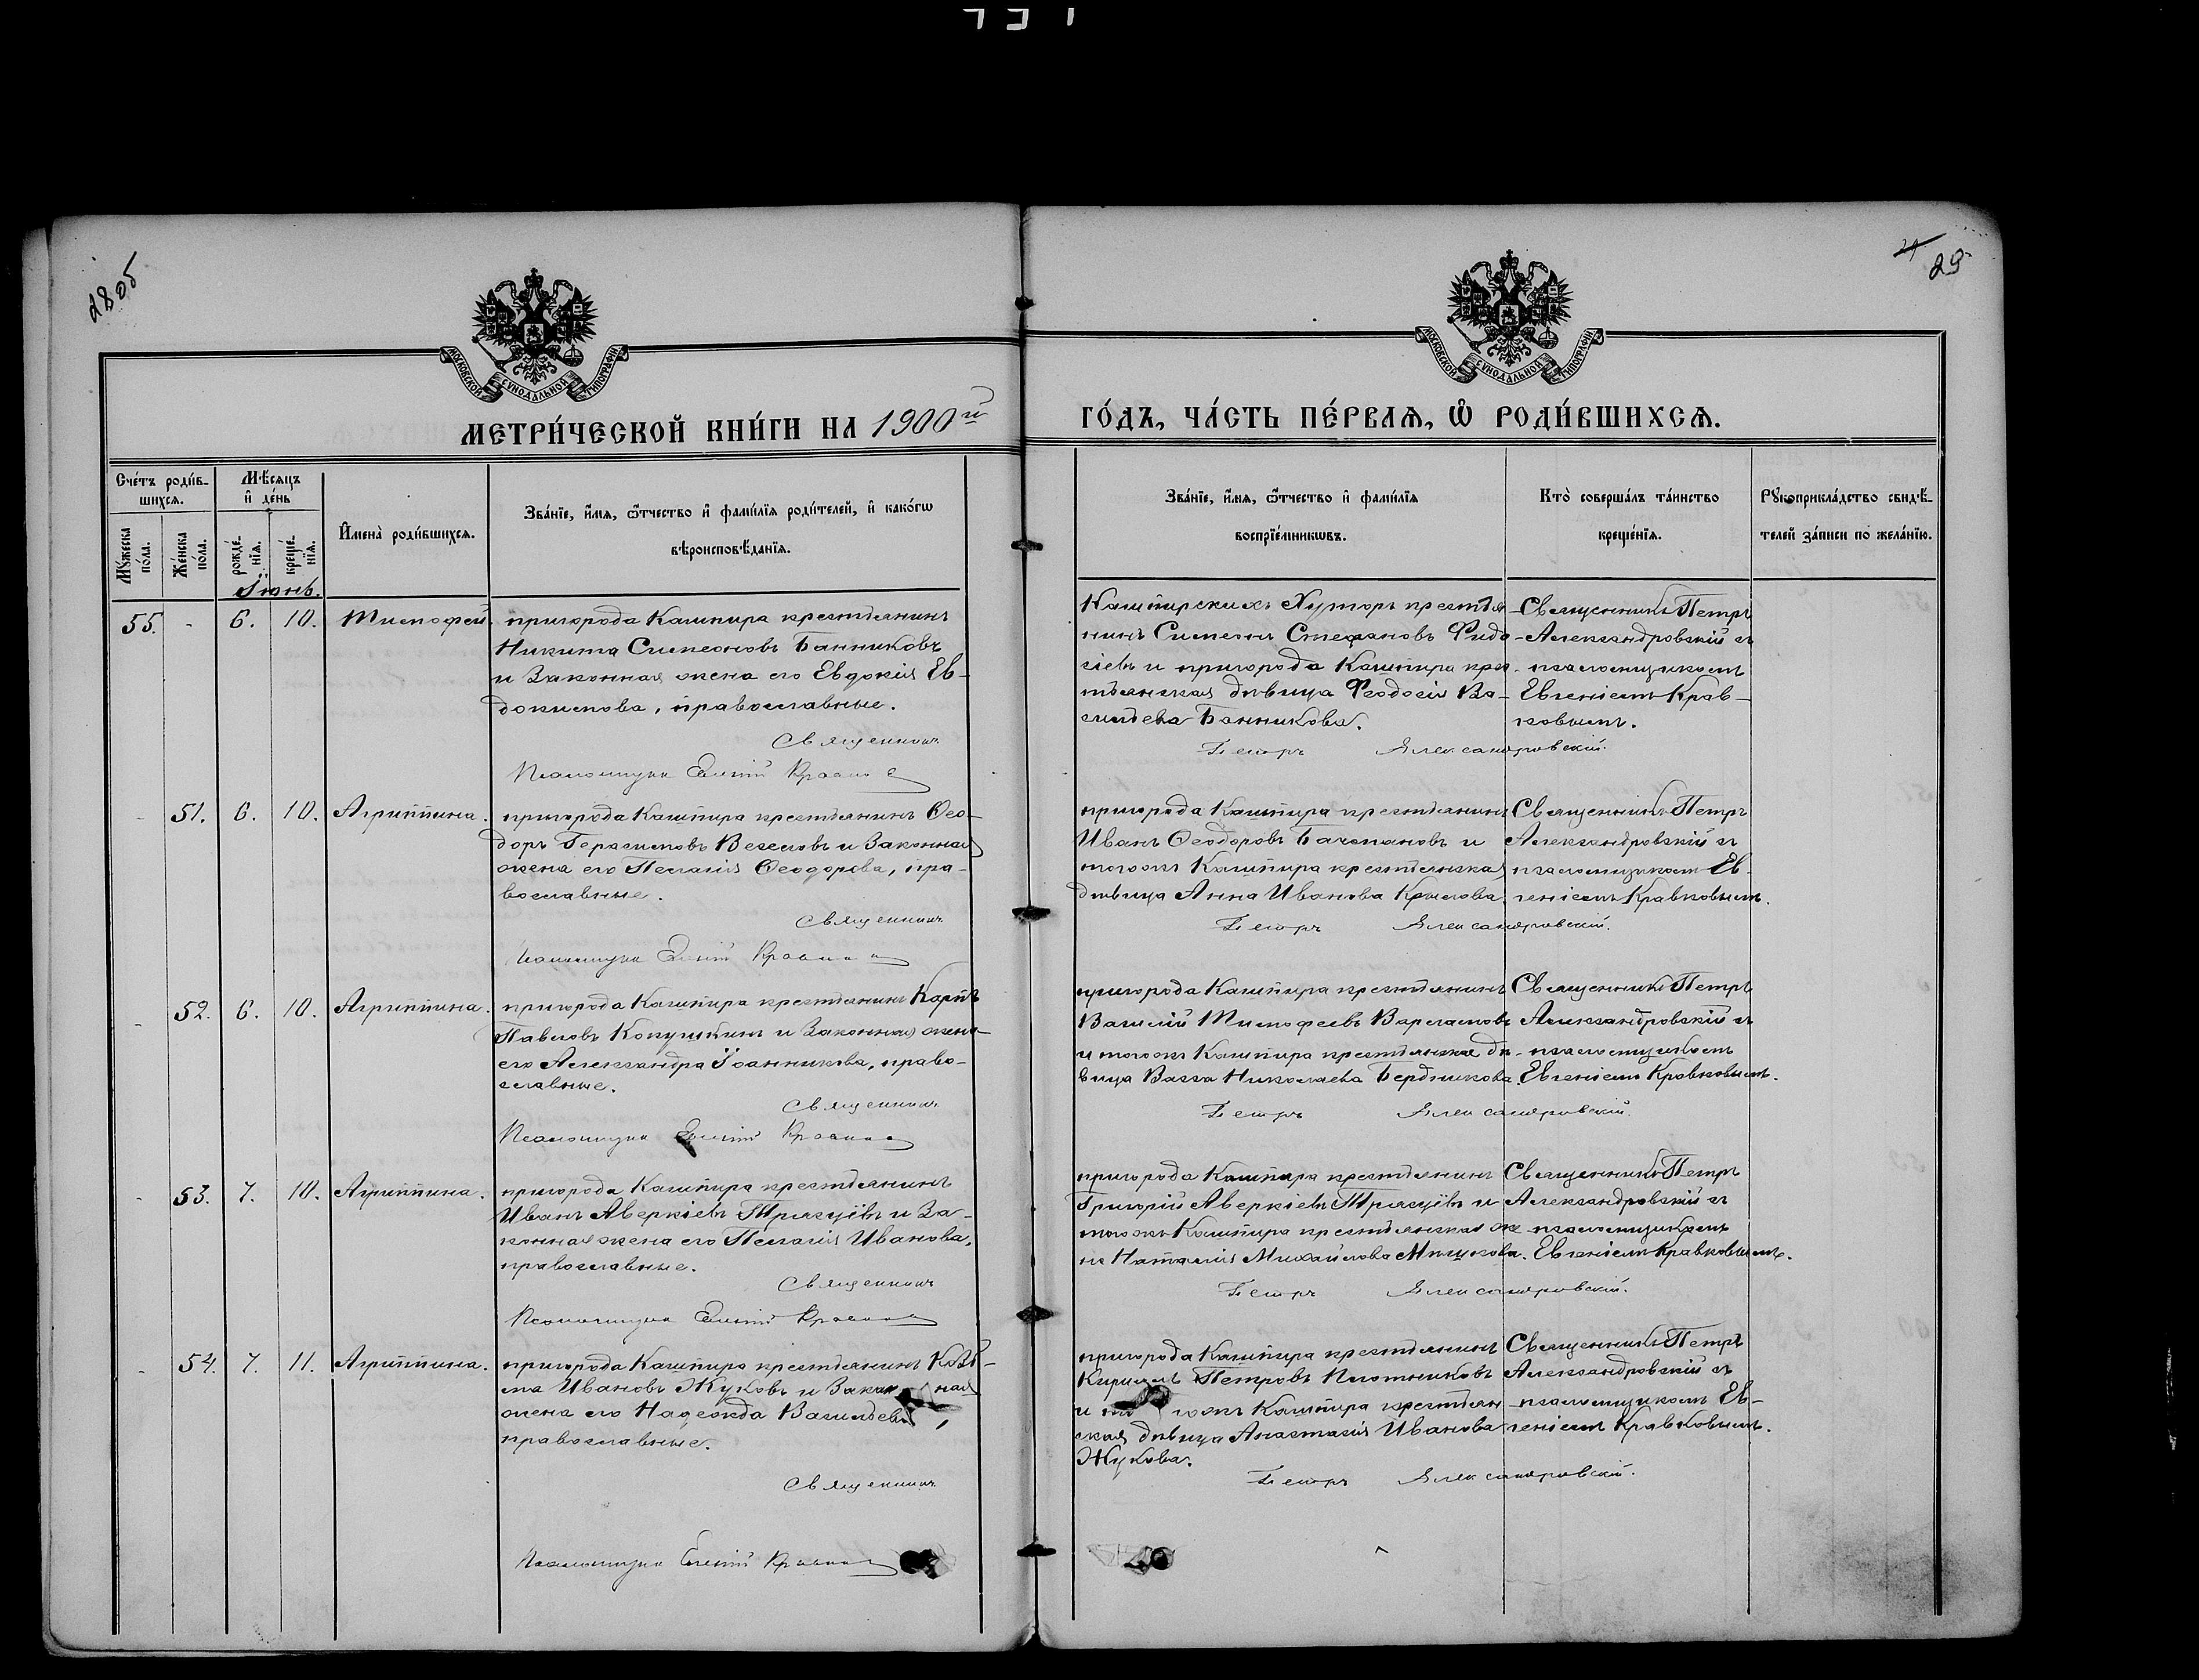 28об
29
МОСКОВСКОЙ СѴНОДАЛЬНОЙ ТИПОГРАФІИ
МОСКОВСКОЙ СѴНОДАЛЬНОЙ ТИПОГРАФІИ
МЕТРИ́ЧЕСКОЙ КНИ́ГИ НА 1900й
ГО́ДЪ, ЧА́СТЬ ПЕ́РВАѦ, Ѡ҆ РОДИ́ВШИХСѦ.
Сче́тъ роди́в-
шихсѧ.
Мꙋ́жеска по́ла.
Же́нска по́ла.
Мѣ́сѧцъ
и҆ де́нь
рожде́-нїѧ.
креще́-нїѧ.
И҆мена̀ роди́вшихсѧ.
Зва́нїе, и҆́мѧ, ѻ҆́тчество и҆ фамі́лїѧ роди́телей, и҆ како́гѡ
вѣроисповѣ́данїѧ.
Зва́нїе, и҆́мѧ, ѻ҆́тчество и҆ фамі́лїѧ
воспрїе́мникѡвъ.
Кто̀ соверша́лъ та́инство
креще́нїѧ.
Рꙋкоприкла́дство свидѣ́-
телей за́писи по жела́нїю.
Іюнь.
55. - 6. 10. Тимофей.
пригорода Кашпира крестьянинъ
Никита Симеоновъ Банниковъ
и законная жена его Евдокія Ев-
докимова, православные.
Священникъ
Псаломщикъ Евгеній Кравков
Кашпирскихъ Хуторъ крестья-
нинъ Симеонъ Стефановъ
и пригорода Кашпира крес-
тьянская дѣвица Феодосія Ва-
сильева Банникова.
Петръ Александровскій.
Священникъ Петръ
Александровскій съ
псаломщикомъ
Евгеніемъ Крав-
ковымъ.
- 51. 6. 10. Агриппина.
пригорода Кашпира крестьянинъ Ѳео-
доръ Герасимовъ Веселовъ и законная
жена его Пелагія Ѳеодорова, пра-
вославные.
Священникъ
Псаломщикъ Евгеній Кравков
пригорода Кашпира крестьянинъ
Иванъ Ѳеодоровъ и
тогожъ Кашпира крестьянская
дѣвица Анна Иванова Крылова.
Петръ Александровскій.
Священникъ Петръ
Александровскій съ
псаломщикомъ Ев-
геніемъ Кравковымъ.
- 52. 6. 10. Агриппина.
пригорода Кашпира крестьянинъ Карпъ
Павловъ и законная жена
его Александра Іоанникова, право-
славные.
Священникъ
Псаломщикъ Евгеній Кравков
пригорода Кашпира крестьянинъ
Василій Тимофеевъ Варламовъ
и тогожъ Кашпира крестьянская дѣ-
вица Васса Николаева Бердникова.
Петръ Александровскій.
Священникъ Петръ
Александровскій съ
псаломщикомъ
Евгеніемъ Кравковымъ.
- 53. 7. 10. Агриппина.
пригорода Кашпира крестьянинъ
Иванъ Аверкіевъ и за-
конная жена его Пелагія Иванова,
православные.
Священникъ
Псаломщикъ Евгеній Кравков
пригорода Кашпира крестьянинъ
Григорій Аверкіевъ и
тогожъ Кашпира крестьянская же-
на Наталія Михайлова Мишкова.
Петръ Александровскій.
Священникъ Петръ
Александровскій съ
псаломщикомъ
Евгеніемъ Кравковымъ.
- 54. 7. 11. Агриппина.
пригорода Кашпира крестьянинъ Козь-
ма Ивановъ Жуковъ и законная
жена его Надежда Васильева,
православные.
Священникъ
Псаломщикъ Евгеній Кравков
пригорода Кашпира крестьянинъ
Кириллъ Петровъ Плотниковъ
и тогожъ Кашпира крестьян-
ская дѣвица Анастасія Иванова
Жукова.
Петръ Александровскій.
Священникъ Петръ
Александровскій съ
псаломщикомъ Ев-
геніемъ Кравковымъ.